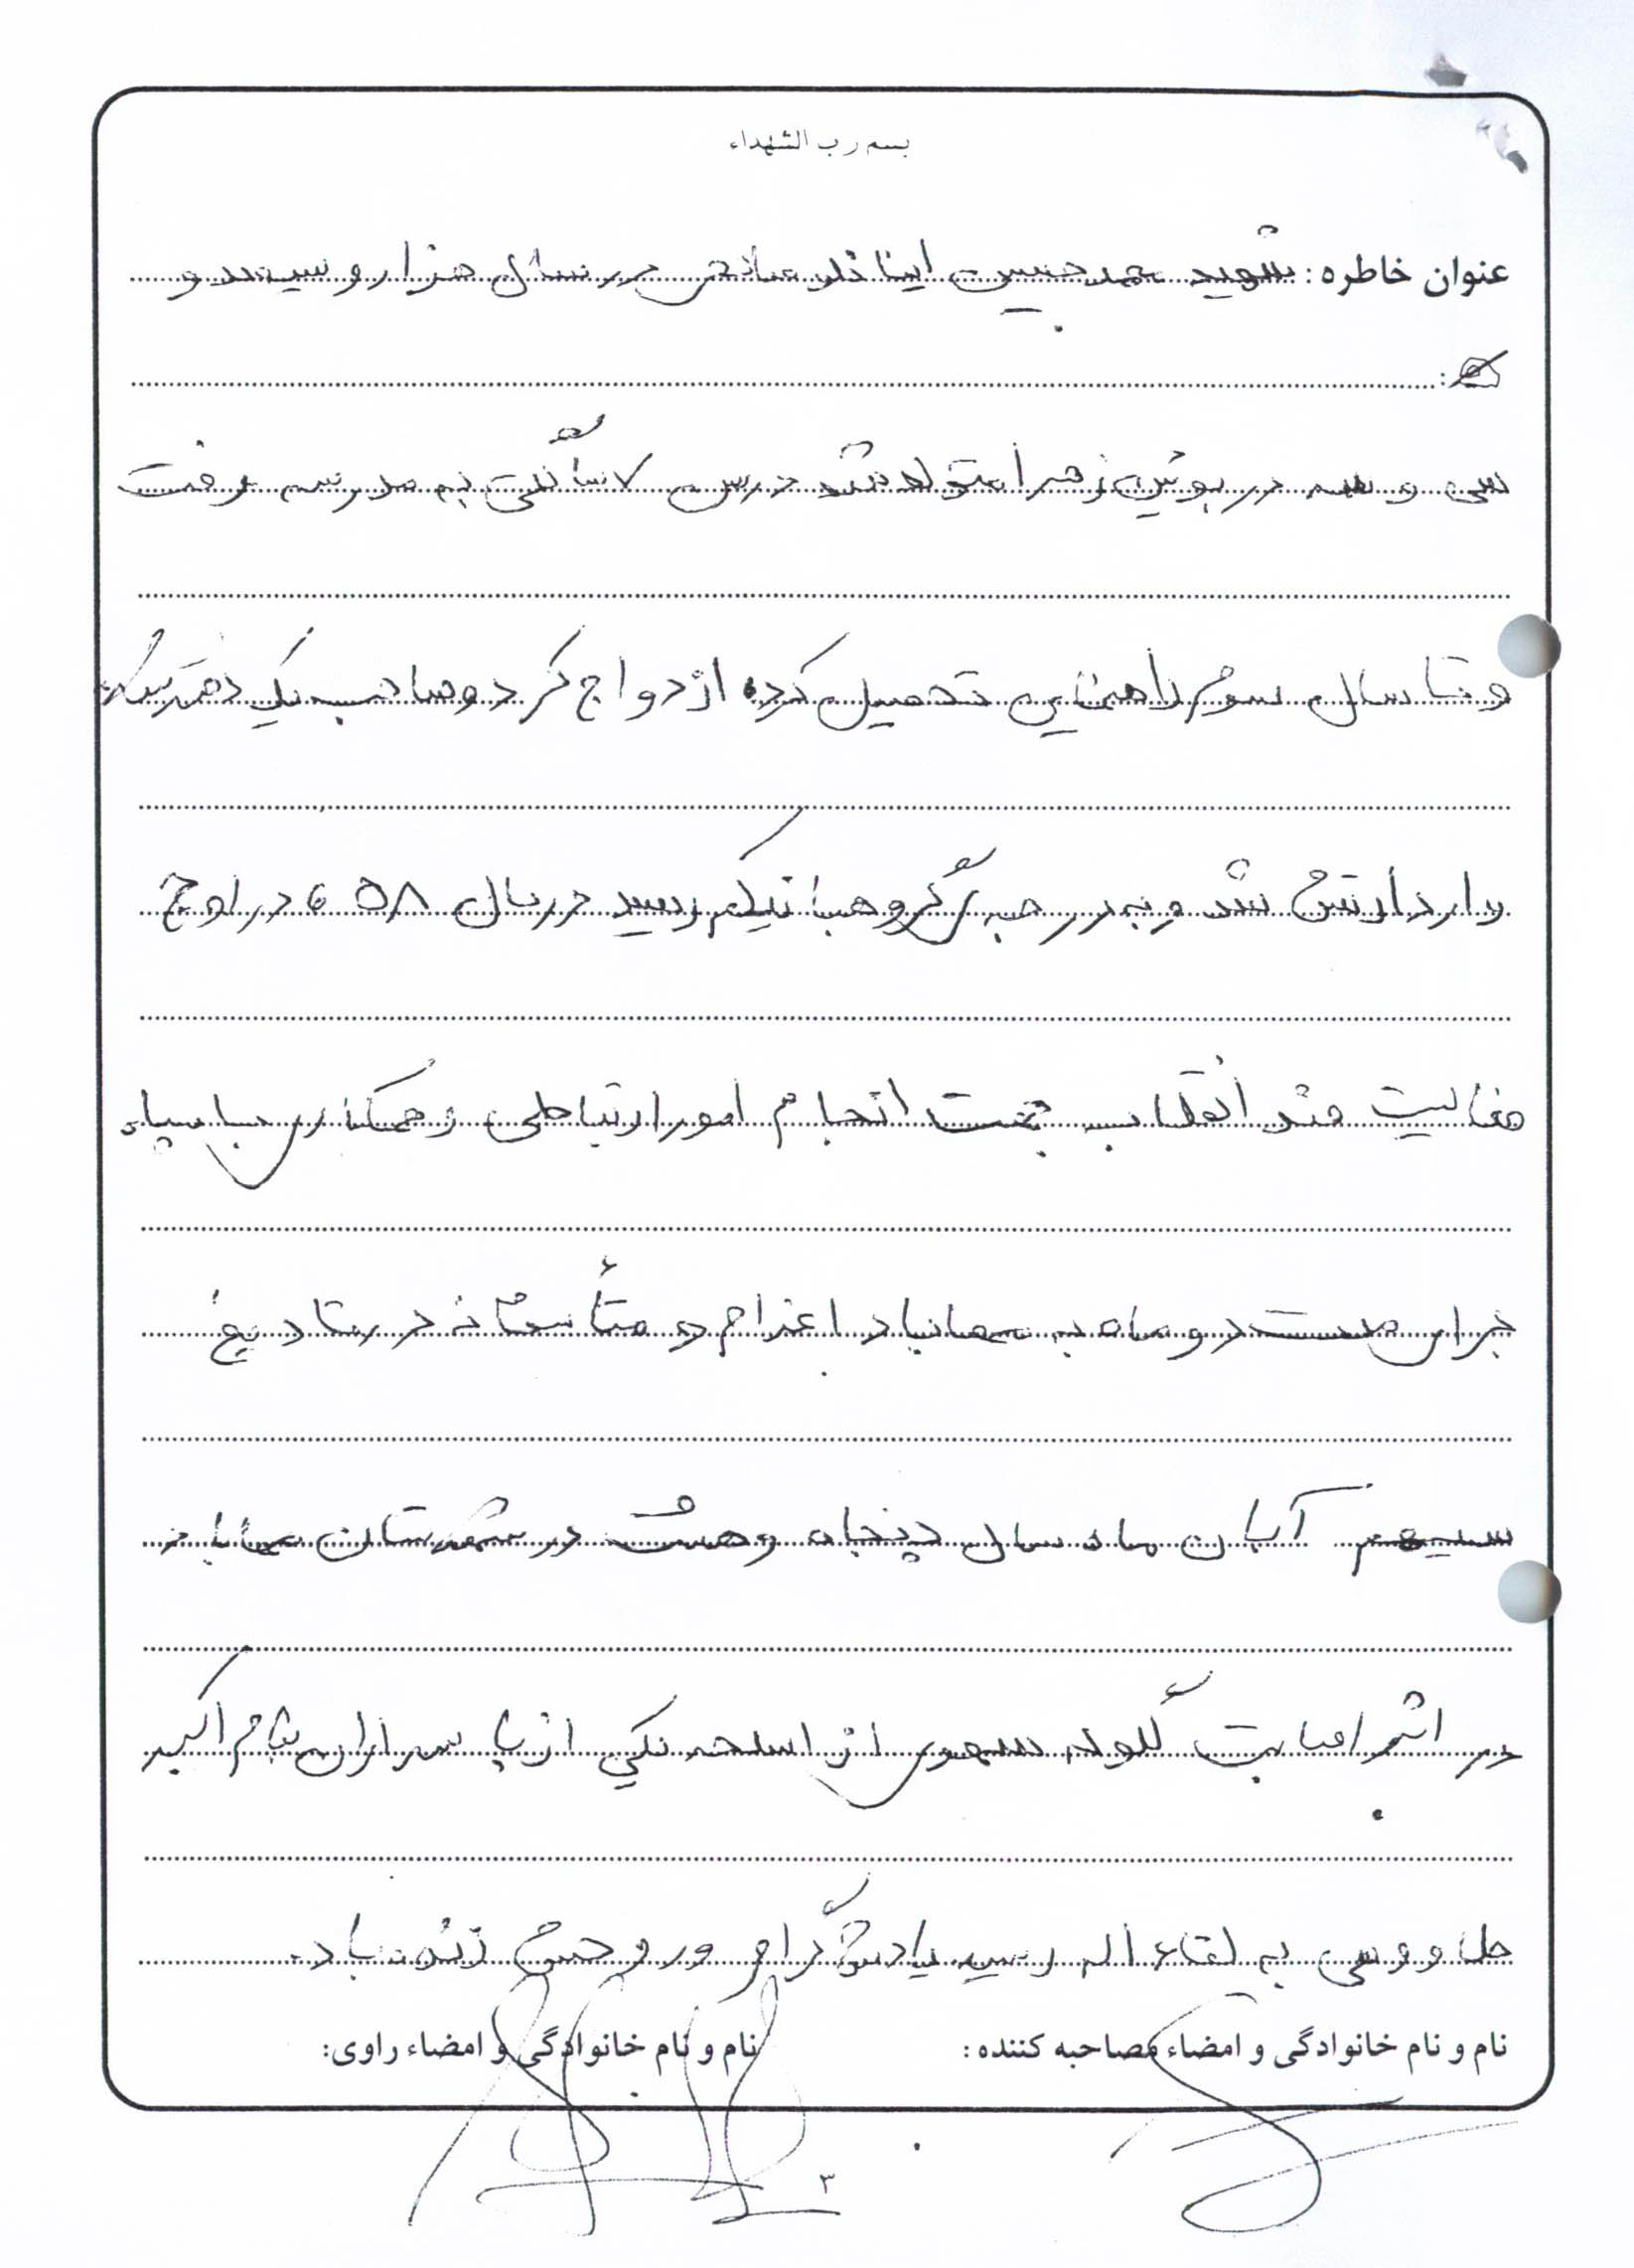 بسم رب الشهداء
عنوان خاطره: شهید محمد حسین اینانلو در سال هزار و سیصد و
سی و سه در بوئین زهرا متولد شد در سن ۷ سالگی به مدرسه رفت
و تا سال سوم راهنمایی تحصیل کرده ازدواج کرد و صاحب یک دختر شد
وارد ارتش شد و به درجه گروهبان یکم رسید در سال ۵۸، در اوج
فعالیت ضد انقلاب جهت انجام امور ارتباطی و همکاری با سپاه
برای مدت دو ماه به مهاباد اعزام و متأسفانه در تاریخ
سیهم آبان ماه سال پنجاه و هشت در شهرستان مهاباد
در اثر اصابت گلوله سهوی از اسلحه یکی از پاسداران بنام اکبر
به لقاء اله رسید یادش گرامی و روحش زنده باد.
نام و نام خانوادگی و امضاء مصاحبه کننده:
نام و نام خانوادگی و امضاء راوی:
۳